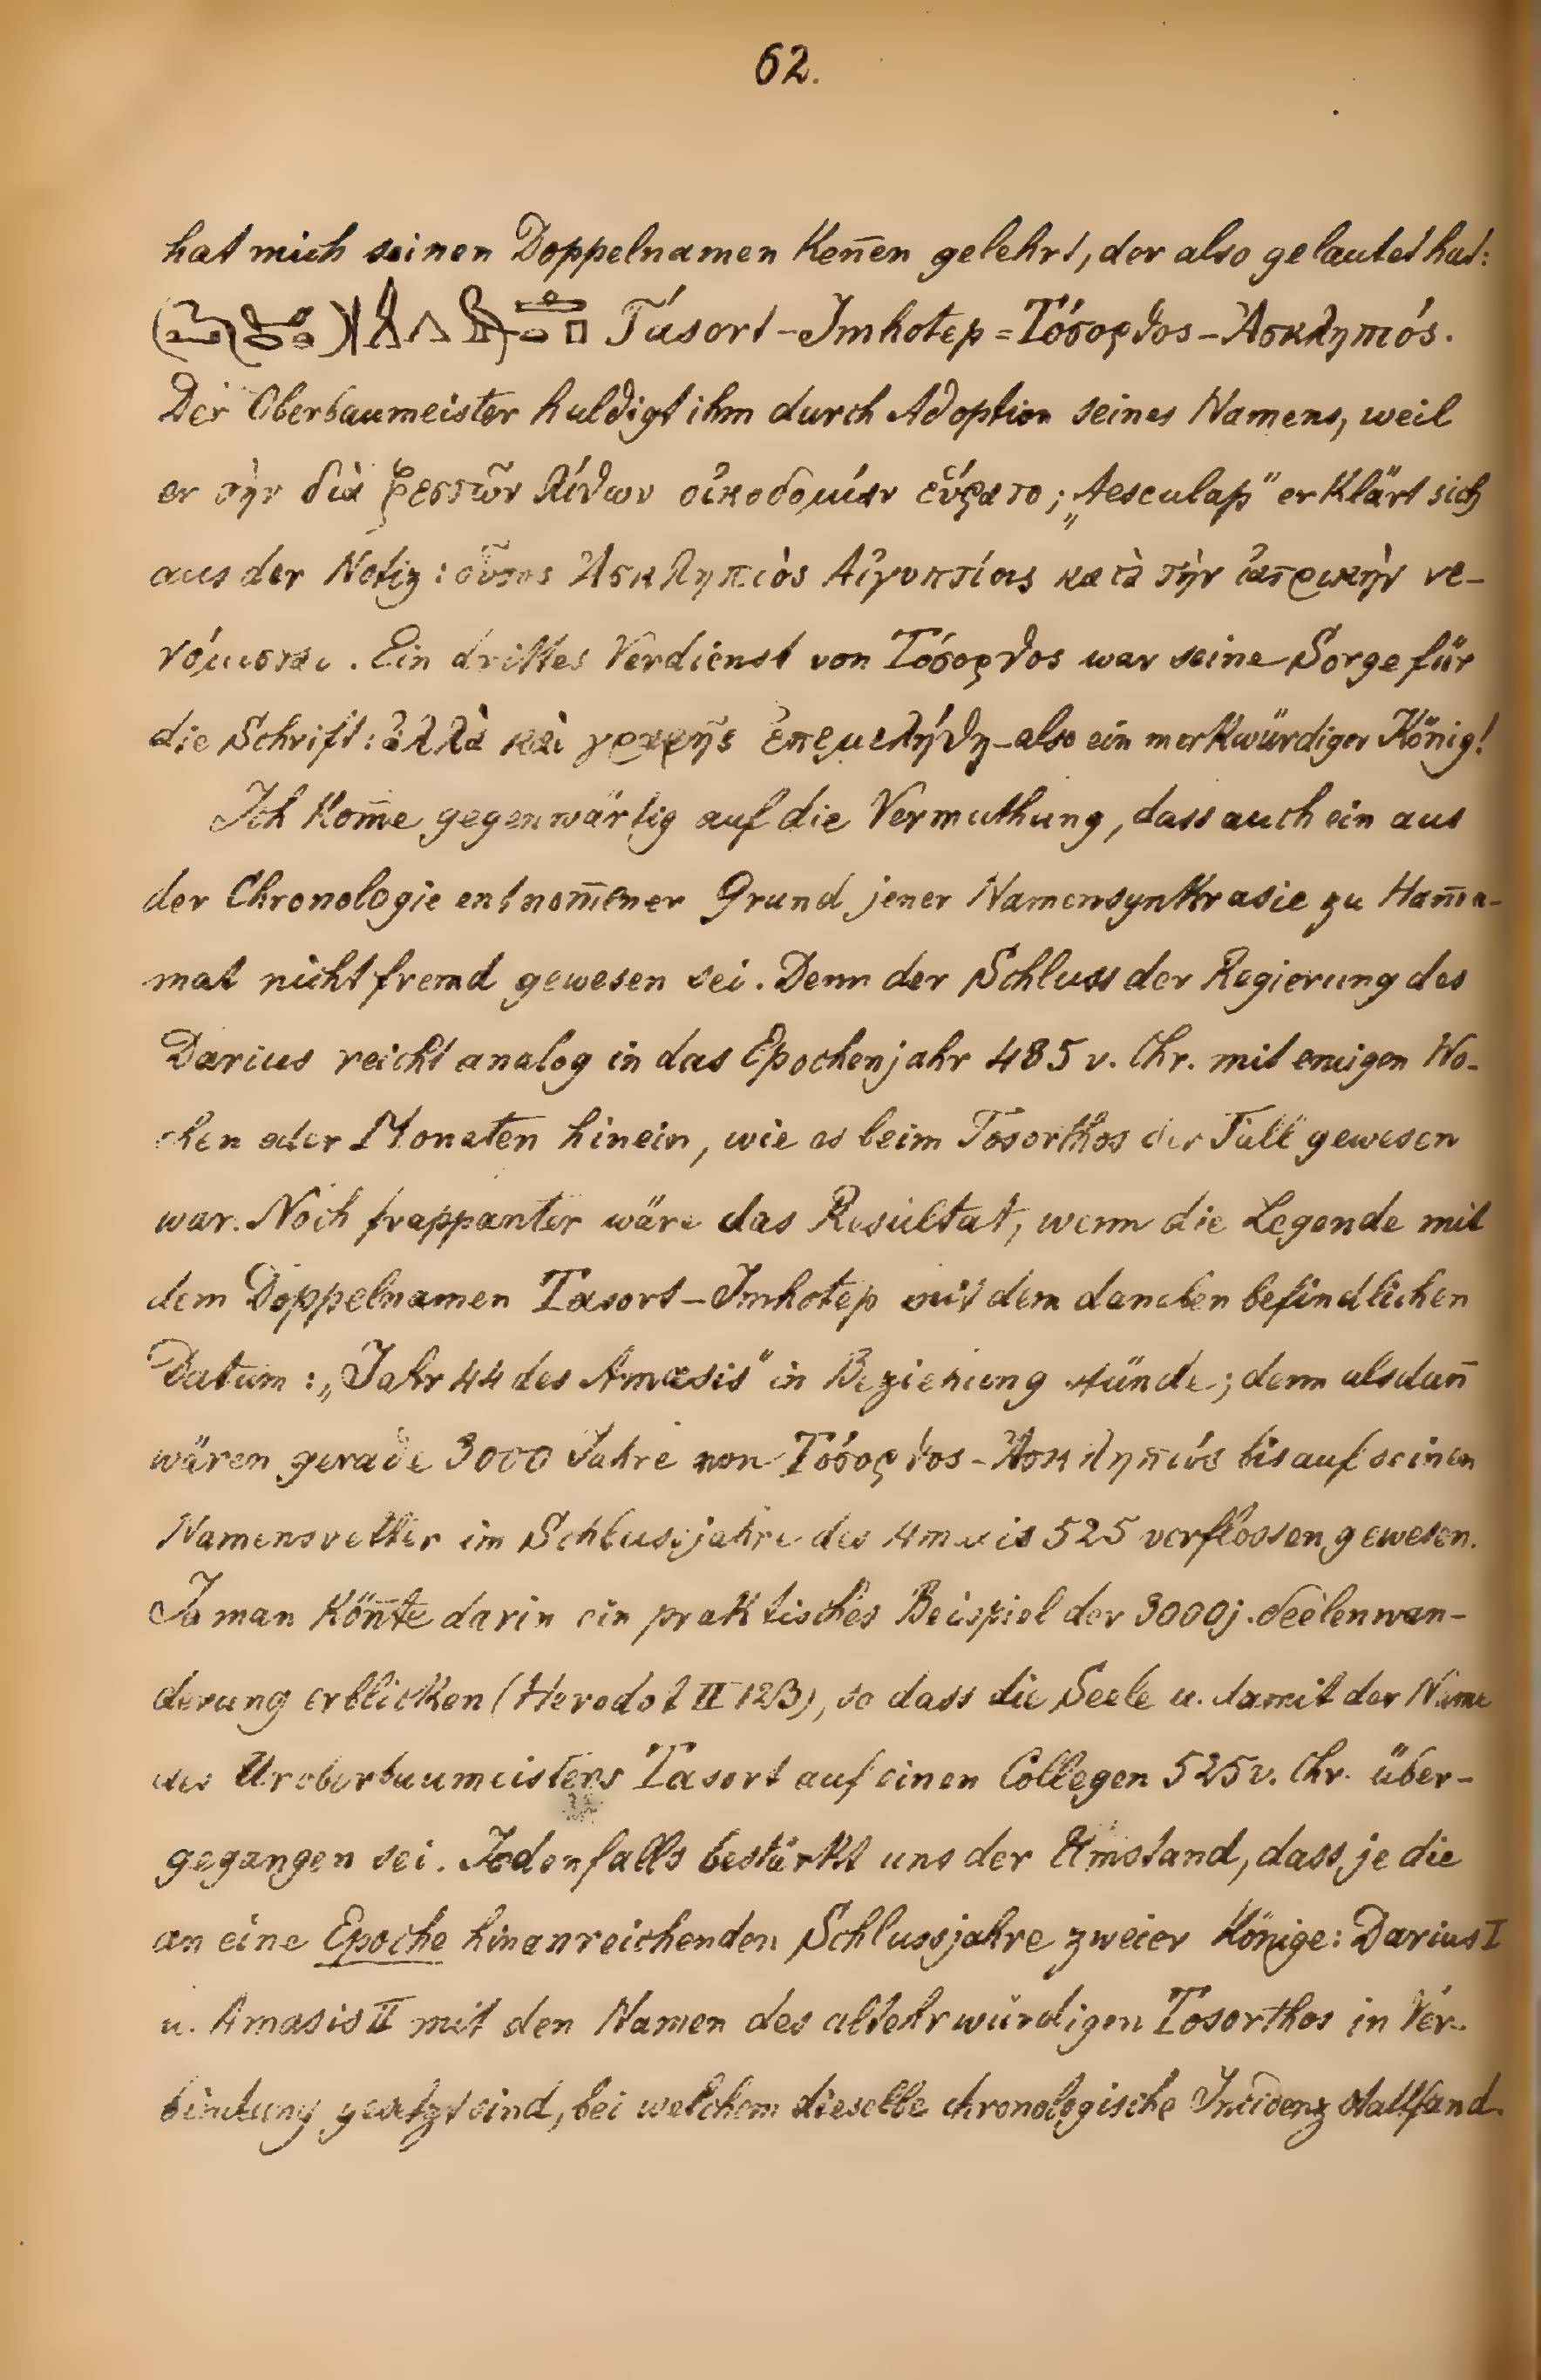 62.
hat mich seinen Doppelnamen Keñen gelehrt, der also gelautet hat:
Tásort-Imhotep = Τόσορθος-Ἀσκληπιός.
Der Oberbaumeister huldigt ihm durch Adoption seines Namens, weil
er τὴν διὰ ξεστῶν λίθων οἰκοδομίαν εὕρατο; „Aesculap" erKlärt sich
aus der Notiz: οὗτος Ἀσκληπιὸς Αἰγυπτίοις κατὰ τὴν ἰατρικὴν νε-
νόμισται. Ein drittes Verdienst von Τόσορθος war seine Sorge für
die Schrift: ἀλλὰ καὶ γραφῆς ἐπεμελήθη - also ein merKwürdiger König!
Ich Kom̄e gegenwärtig auf die Vermuthung, dass auch ein aus
der Chronologie entnom̄ener Grund jener NamensynKrasie zu Ham̄a-
mat nicht fremd gewesen sei. Denn der Schluss der Regierung des
Darius reicht analog in das Epochenjahr 485 v. Chr. mit einigen Wo-
chen oder Monaten hinein, wie es beim Tosorthos der Fall gewesen
war. Noch frappanter wäre das Resultat, wenn die Legende mit
dem Doppelnamen Tasort-Imhotep mit dem daneben befindlichen
Datum: „Jahr 44 des Amasis" in Beziehung stünde; denn alsdañ
wären gerade 3000 Jahre von Τόσορθος-Ἀσκληπιός bis auf seinen
Namensvetter im Schlussjahre des Amasis 525 verflossen gewesen.
Ja man Köñte darin ein praKtisches Beispiel der 3000j. Seelenwan-
derung erblicKen (Herodot II 123), so dass die Seele u. damit der Name
des Uroberbaumeisters Tasort auf einen Collegen 525 v. Chr. über-
gegangen sei. Jedenfalls bestärKt uns der Umstand, dass je die
an eine Epoche hinanreichenden Schlussjahre zweier Könige: Darius I
u. Amasis II mit den Namen des altehrwürdigen Tosorthos in Ver-
bindung gesetzt sind, bei welchem dieselbe chronologische Incidenz stattfand.